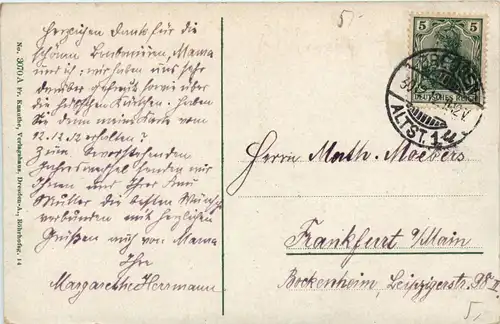 Herzlichen Dank für die
schönen Bonbonieren, Mama
und ich; wir haben uns sehr
darüber gefreut sowie über
die hübschen Kärtchen. Haben
Sie denn meine Karte vom
12.12.12 erhalten?
Zum bevorstehenden
Jahreswechsel senden wir
Ihnen und Ihrer Frau
Mutter die besten Wünsche
verbunden mit herzlichen
Grüßen auch von Mama
Ihre
Margarethe Herrmann
No. 3070 A Fr. Knauthe, Verlagshaus, Dresden-A., Röhrhofsg. 14
5
5
DEUTSCHES REICH
ALTST. 1
Herrn Math. Moebers
Frankfurt a/Main
Bockenheim, Leipzigerstr. 98 II
5.-
5.-